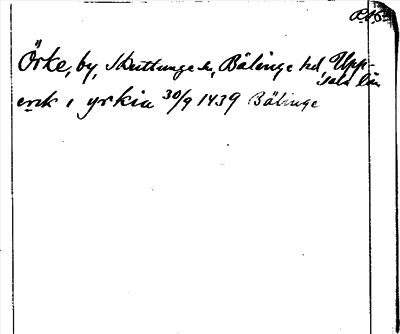 Örke, by, Skuttunge sn, Bälinge hd, Upp-
sala län
enk i yrkiu 30/9 1439 Bälinge